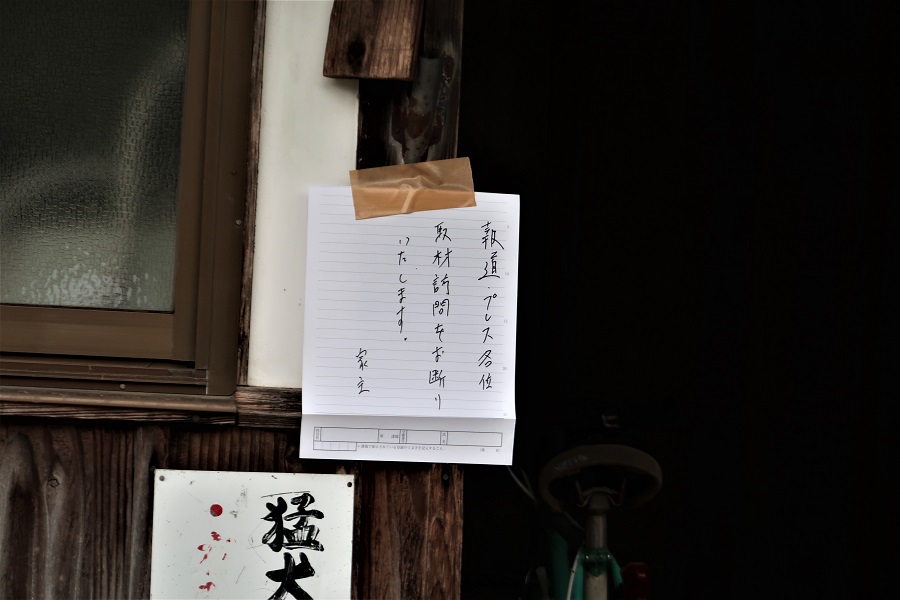 報道・プレス各位
取材訪問をお断り
いたします。
家主
猛犬